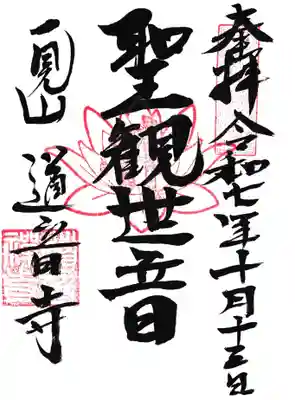 奉拝 令和七年十月十三日
聖観世音
一見山 道音寺